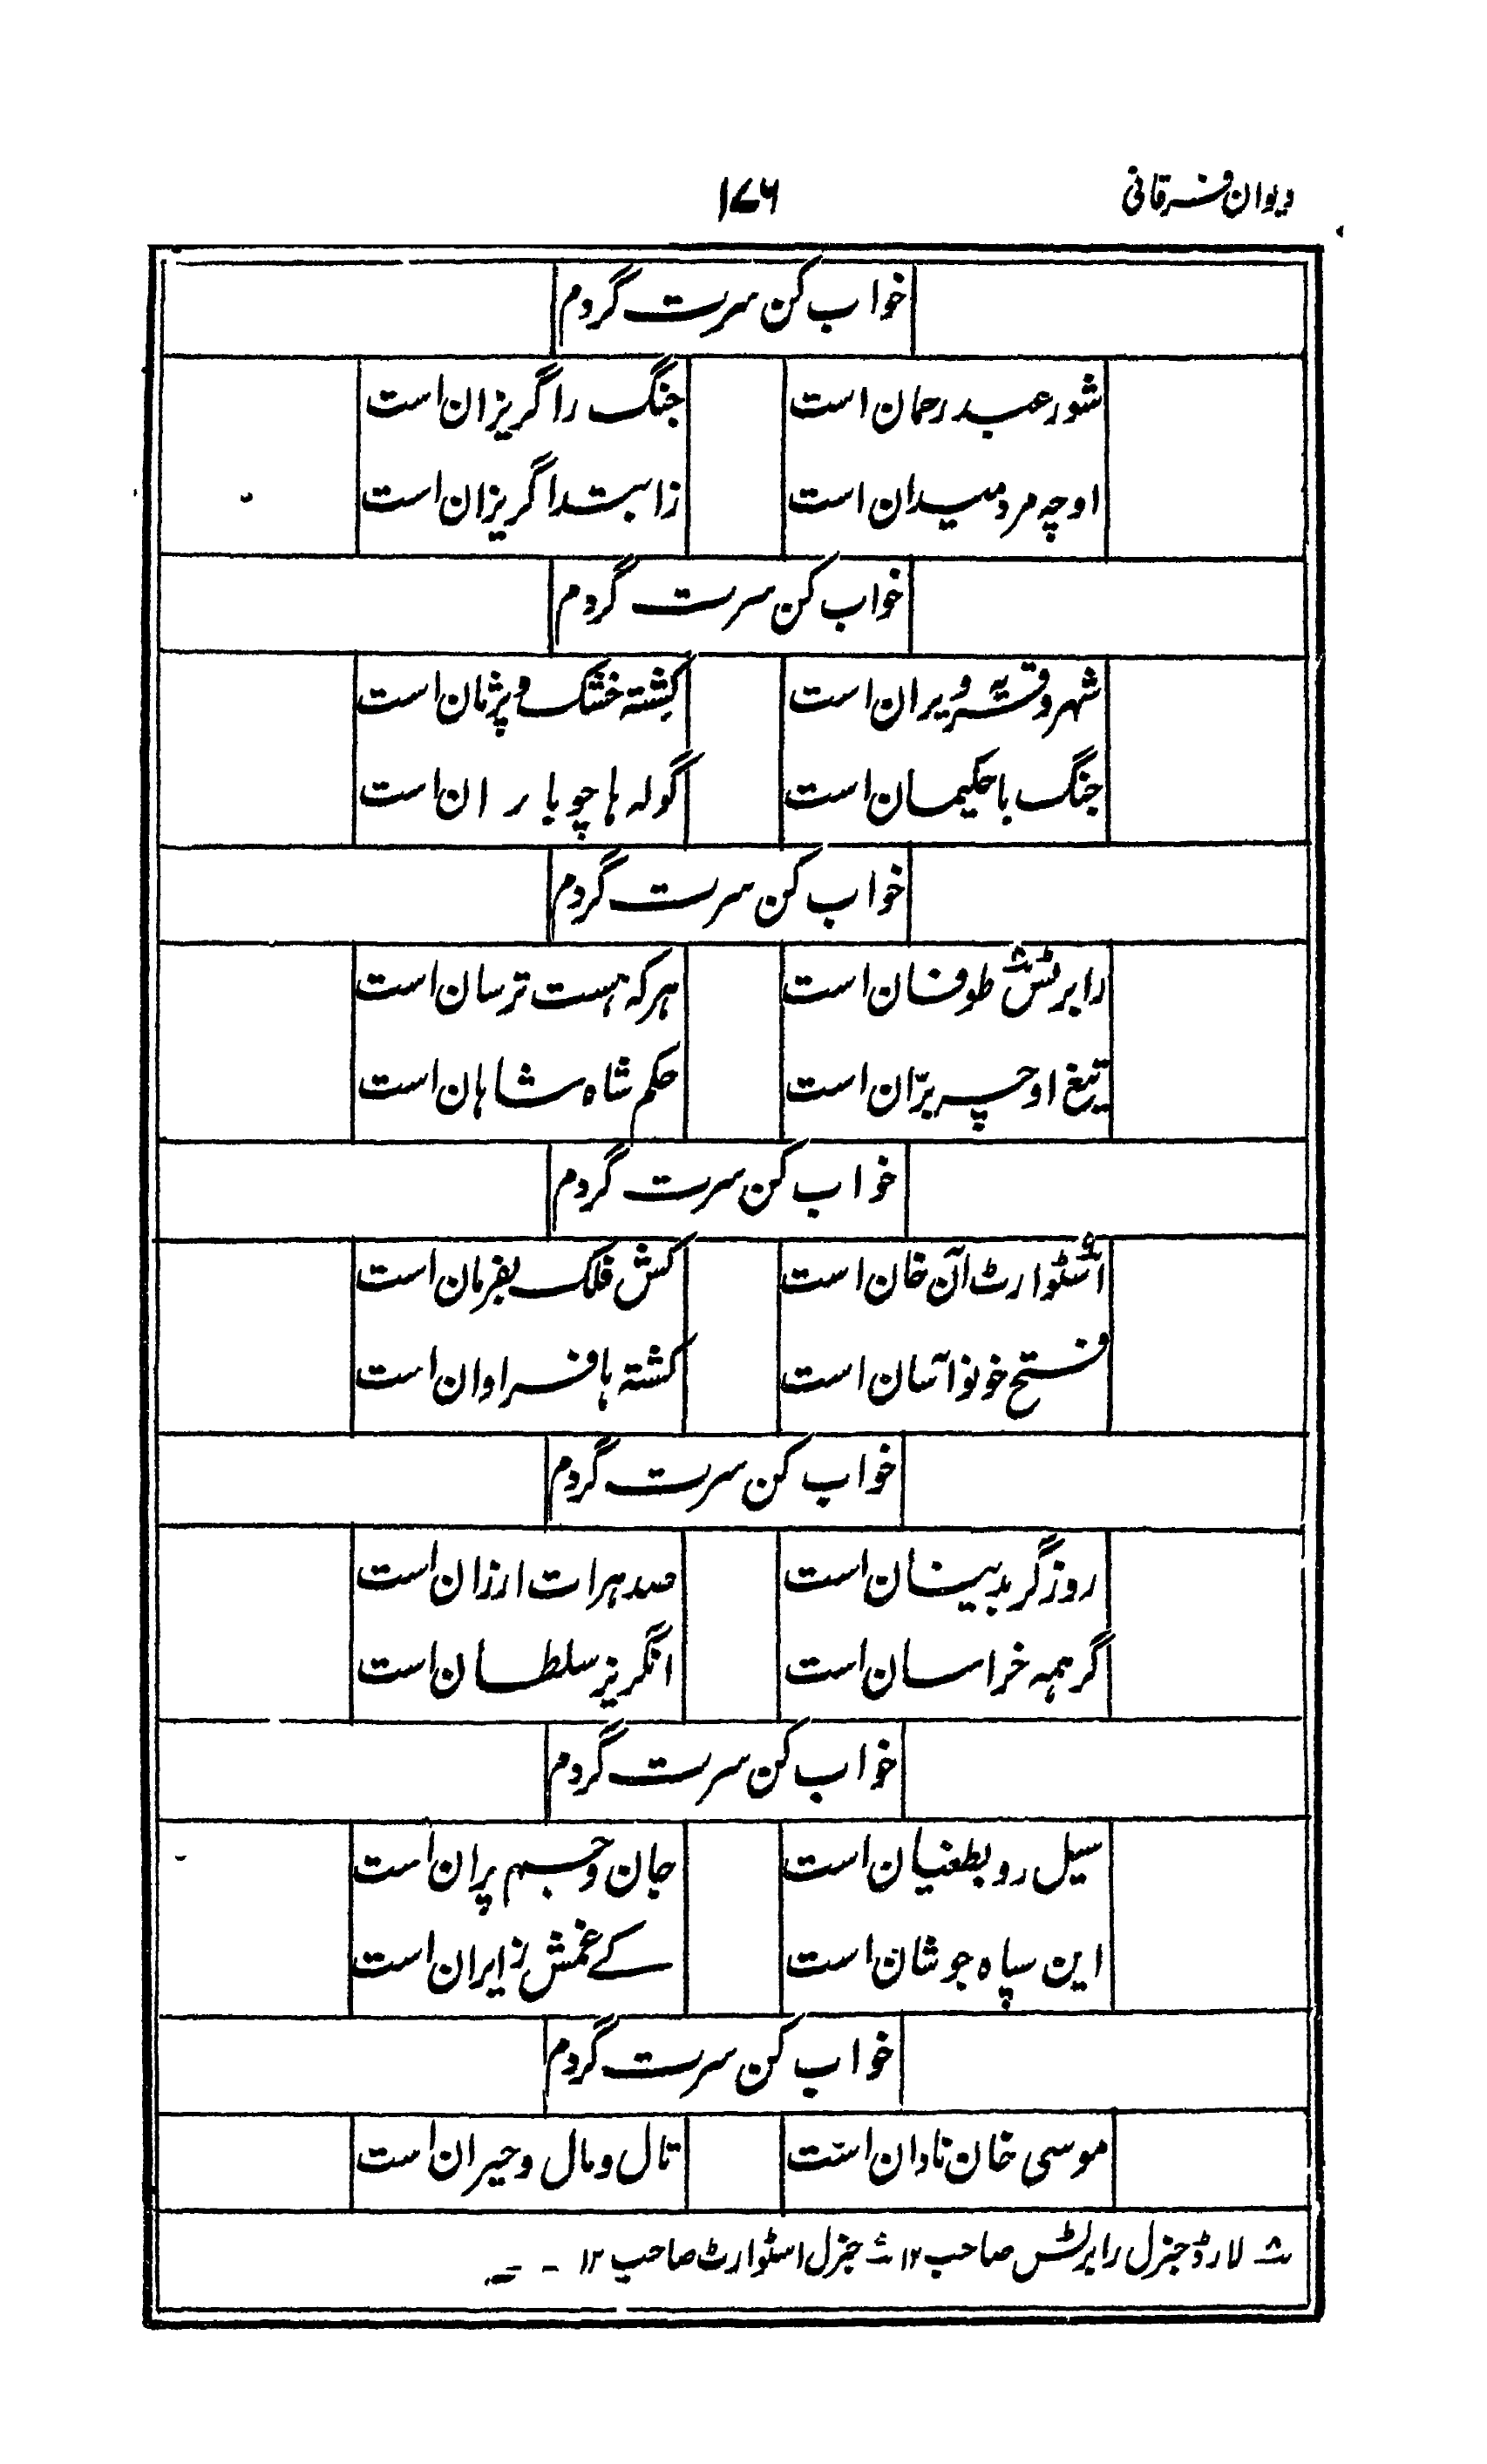 دیوان فرقانی ۱۷۶
خواب کن سرت گردم
شور عبد رحمان است جنگ را گریزان است
او چه مرد میدان است ز ابتدا گریزان است
خواب کن سرت گردم
شهر و قریه ویران است کشته خشک و پژمان است
جنگ با حکیمان است گوله ها چو باران است
خواب کن سرت گردم
رابرٹس۸ طوفان است هرکه هست ترسان است
تیغ او چه برّان است حکم شاه شاهان است
خواب کن سرت گردم
اسٹوارٹ۹ آن خان است کش فلک بفرمان است
فتح خونو آسان است کشته ها فراوان است
خواب کن سرت گردم
روزگر بدینسان است صد هرات ارزان است
گر همه خراسان است انگریز سلطان است
خواب کن سرت گردم
سیل رو بطغیان است جان و جسم پران است
این سپاه جوشان است کے غمش ز ایران است
خواب کن سرت گردم
موسی خان نادان است تال و مال و حیران است
۸ لارڈ جنرل رابرٹس صاحب ۱۲ ۹ جنرل اسٹوارٹ صاحب ۱۲